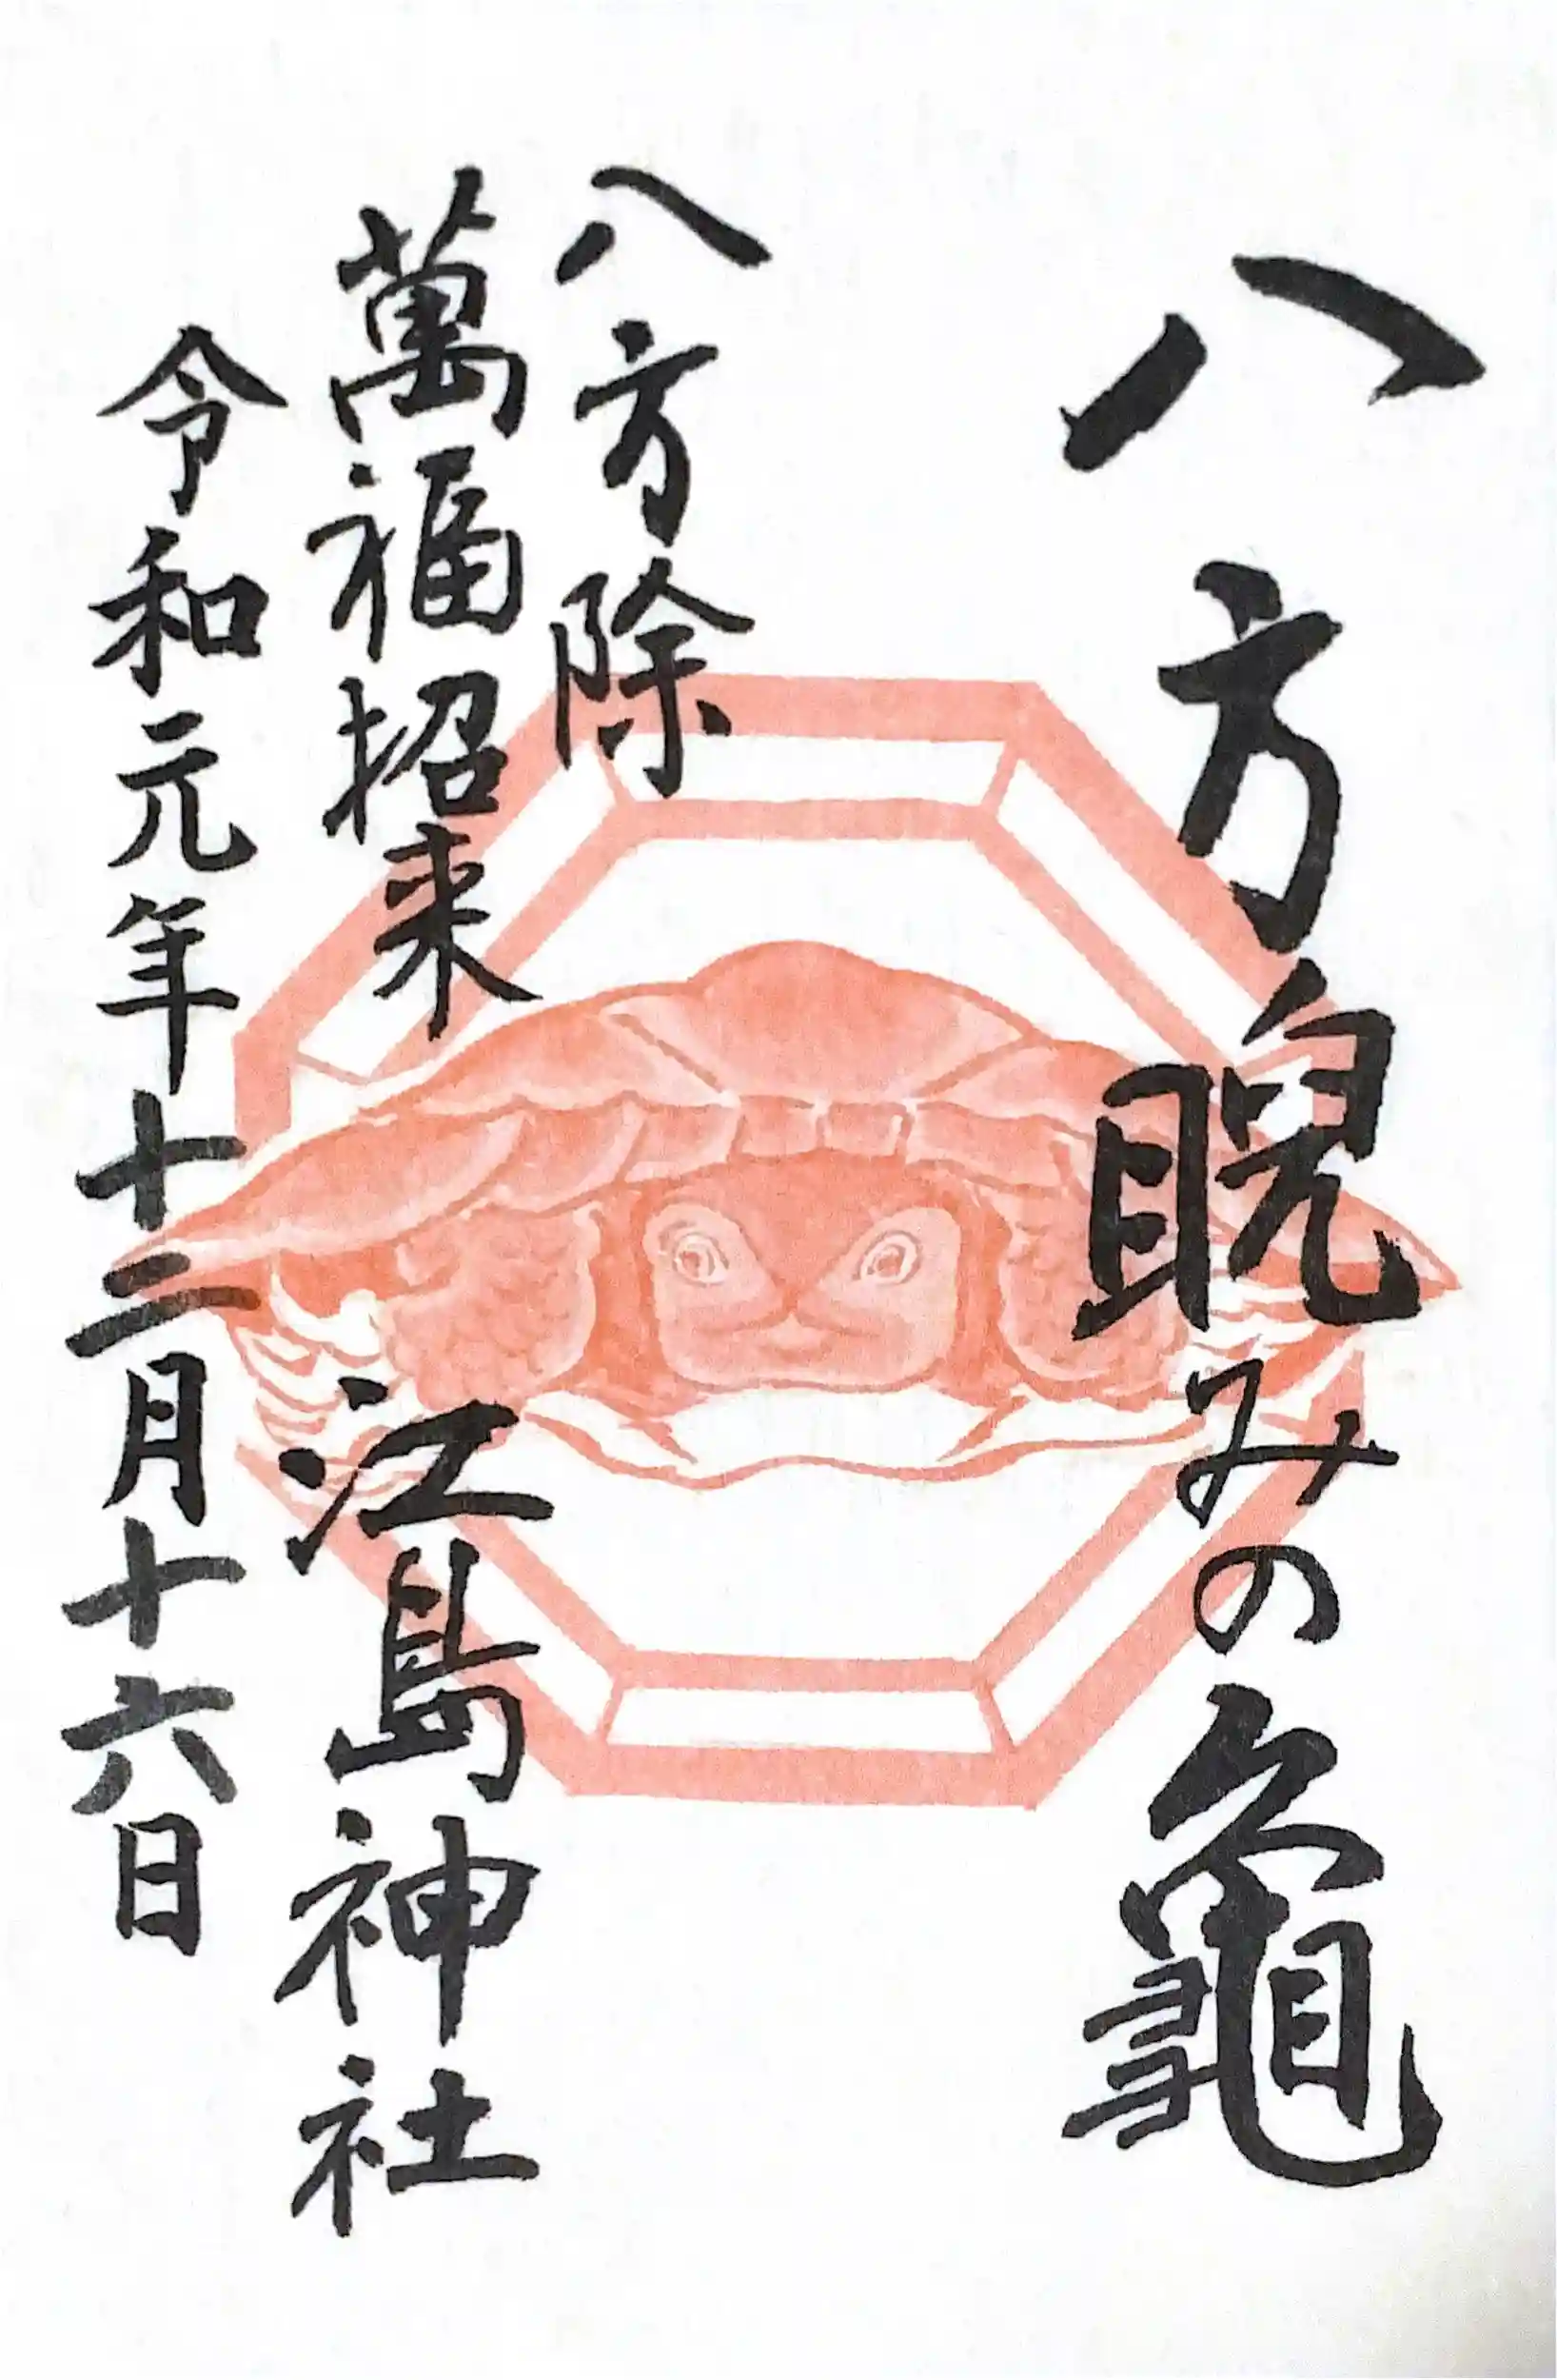 八方睨みの龜
八方除
萬福招来
江島神社
令和元年十二月十六日